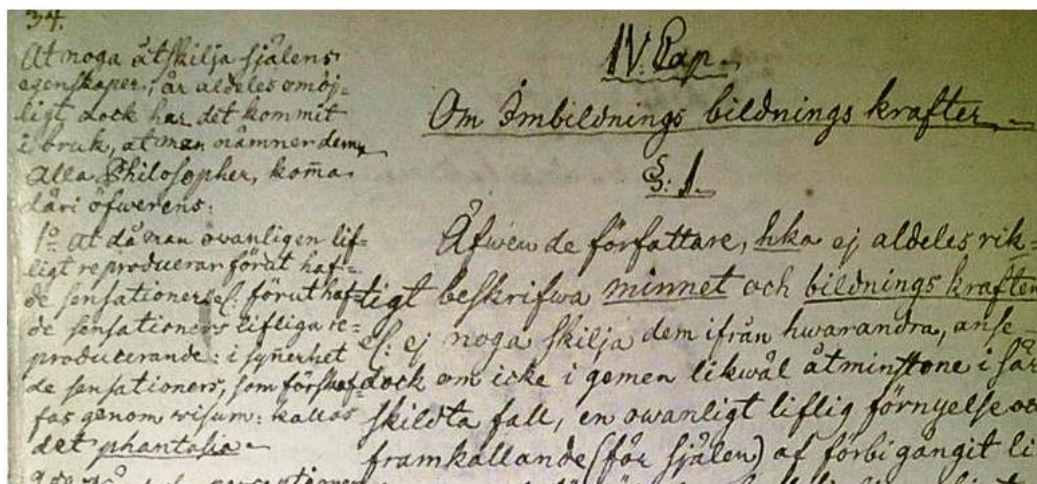 34.
At noga åtskilja själens
egenskaper, är aldeles omöj=
ligt dock har det kommit
i bruk, at man nämner dem
Alla Philosopher, kom̄a
däri öfwerens:
1o at då man owanligen lif=
ligt reproducerar förut haf=
de sensationer el: förut haf=
de sensationers lifliga re=
producerande: i syñerhet
de sensationers, som förskaf=
fas genom visum: kallas
det phantasia
perceptioner
IV. Cap.
Om Imbildnings bildnings krafter
§: 1.
Äfwen de författare, hka ej aldeles rik=
tigt beskrifwa minnet och bildnings kraften
el: ej noga skilja dem ifrån hwarandra, anse
dock om icke i gemen likwäl åtminstone i sär
skildta fall, en owanligt liflig förnyelse oc
framkallande (för själen) af förbigångit li